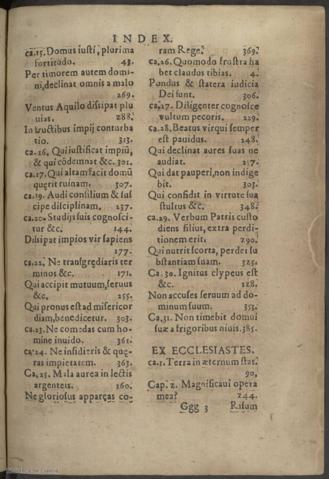 INDEX.
ca.15. Domus iusti, plurima
fortitudo. 43.
Per timorem autem domi-
ni, declinat omnis a malo
269.
Ventus Aquilo dissipat plu
uias. 288.
In fructibus impij conturba
tio. 313.
ca.16. Qui iustificat impiũ,
& qui cõdemnat &c. 301.
ca.17. Qui altam facit domũ
quęrit ruinam. 307.
ca.19. Audi consilium & sus
cipe disciplinam. 237.
ca.20. Studijs suis cognosci-
tur &c. 144.
Dissipat impios vir sapiens
177.
ca.22. Ne transgrediaris ter
minos &c. 171.
Qui accipit mutuum, seruus
&c. 255.
Qui pronus est ad misericor
diam, benedicetur. 303.
ca.23. Ne comedas cum ho-
mine inuido. 361.
ca.24. Ne insidieris & quę-
ras impietatem. 363.
Ca.25. Mala aurea in lectis
argenteis. 160.
Ne gloriosus appareas co-
ram Rege. 369.
ca.26. Quomodo frustra ha
bet claudus tibias. 4.
Pondus & statera iudicia
Dei sunt. 306.
ca.27. Diligenter cognosce
vultum pecoris. 229.
ca.28. Beatus vir qui semper
est pauidus. 248.
Qui declinat aures suas ne
audiat. 217.
Qui dat pauperi, non indige
bit. 303.
Qui confidit in virtute sua
stultus &c. 348.
ca.29. Verbum Patris custo
diens filius, extra perdi-
tionem erit. 290.
Qui nutrit scorta, perdet su
bstantiam suam. 325.
Ca.30. Ignitus clypeus est
&c. 128.
Non accuses seruum ad do-
minum suum. 353.
Ca.31. Non timebit domui
suæ a frigoribus niuis. 385.
EX ECCLESIASTES.
ca.1. Terra in æternum stat.
90.
Cap. 2. Magnificaui opera
mea? 244.
Ggg 3 Risum